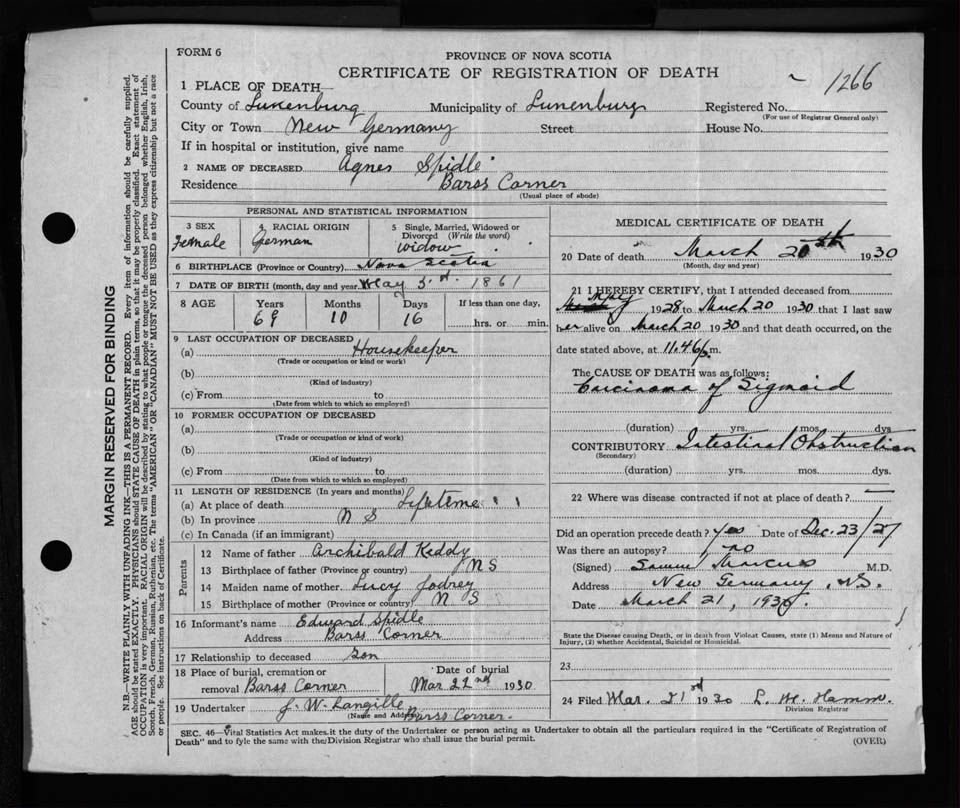 FORM 6
PROVINCE OF NOVA SCOTIA
CERTIFICATE OF REGISTRATION OF DEATH
1266
1 PLACE OF DEATH—
County of Lunenburg Municipality of Lunenburg Registered No.
(For use of Registrar General only)
City or Town New Germany Street House No.
If in hospital or institution, give name
2 NAME OF DECEASED Agnes Spidle
Residence Barss Corner
(Usual place of abode)
PERSONAL AND STATISTICAL INFORMATION
3 SEX 4 RACIAL ORIGIN 5 Single, Married, Widowed or
Divorced (Write the word)
Female German widow
6 BIRTHPLACE (Province or Country) Nova Scotia
7 DATE OF BIRTH (month, day and year) May 3rd. 1861
8 AGE Years Months Days If less than one day,
69 10 16 hrs. or min.
9 LAST OCCUPATION OF DECEASED
(a) Housekeeper
(Trade or occupation or kind or work)
(b)
(Kind of industry)
(c) From to
(Date from which to which so employed)
10 FORMER OCCUPATION OF DECEASED
(a)
(Trade or occupation or kind of work)
(b)
(Kind of industry)
(c) From to
(Date from which to which so employed)
11 LENGTH OF RESIDENCE (In years and months)
(a) At place of death Lifetime " "
(b) In province N S
(c) In Canada (if an immigrant)
Parents
12 Name of father Archibald Keddy
13 Birthplace of father (Province or country) N S
14 Maiden name of mother Lucy Jodrey
15 Birthplace of mother (Province or country) N S
16 Informant's name Edward Spidle
Address Barss Corner
17 Relationship to deceased Son
18 Place of burial, cremation or Date of burial
removal Barss Corner Mar 22nd 1930
19 Undertaker J. W. Langille
(Name and Address) Barss Corner.
MEDICAL CERTIFICATE OF DEATH
20 Date of death March 20th 1930
(Month, day and year)
21 I HEREBY CERTIFY, that I attended deceased from
May 1928 to March 20 1930 that I last saw
her alive on March 20 1930 and that death occurred, on the
date stated above, at 11.46 p.m.
The CAUSE OF DEATH was as follows:
Carcinoma of Sigmoid
(duration) yrs. mos. dys
CONTRIBUTORY Intestinal Obstruction
(Secondary)
(duration) yrs. mos. dys.
22 Where was disease contracted if not at place of death? —
Did an operation precede death? yes Date of Dec. 23/27
Was there an autopsy? no
(Signed) Marcus M.D.
Address New Germany, N.S.
Date March 21, 1930.
State the Disease causing Death, or in death from Violent Causes, state (1) Means and Nature of
Injury, (2) whether Accidental, Suicidal or Homicidal.
23
24 Filed Mar. 21rd 1930 L. M. Hamm.
Division Registrar
SEC. 46—Vital Statistics Act makes it the duty of the Undertaker or person acting as Undertaker to obtain all the particulars required in the "Certificate of Registration of
Death" and to fyle the same with the Division Registrar who shall issue the burial permit.
(OVER)
MARGIN RESERVED FOR BINDING
N.B.—WRITE PLAINLY WITH UNFADING INK—THIS IS A PERMANENT RECORD. Every item of information should be carefully supplied.
AGE should be stated EXACTLY. PHYSICIANS should STATE CAUSE OF DEATH in plain terms, so that it may be properly classified. Exact statement of
OCCUPATION is very important. RACIAL ORIGIN will be described by stating to what people or tongue the deceased person belonged whether English, Irish,
Scotch, French, German, Russian, Ruthenian, etc. The terms "AMERICAN" OR "CANADIAN" MUST NOT BE USED as they express citizenship but not a race
or people. See instructions on back of Certificate.